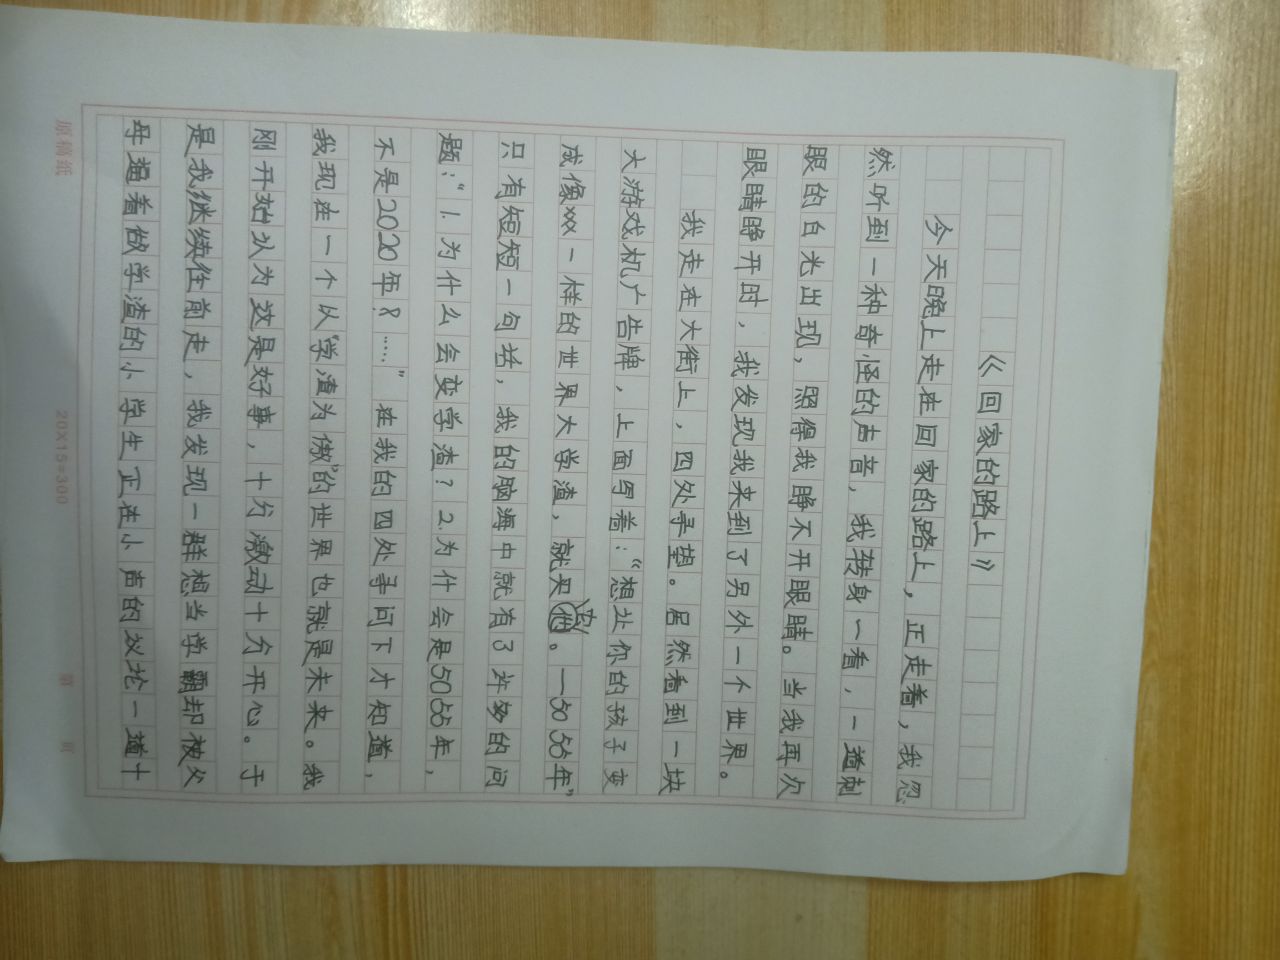 《回家的路上》
今天晚上走在回家的路上，正走着，我忽
然听到一种奇怪的声音，我转身一看，一道刺
眼的白光出现，照得我睁不开眼睛。当我再次
眼睛睁开时，我发现我来到了另外一个世界。
我走在大街上，四处寻望。居然看到一块
大游戏机广告牌，上面写着：“想让你的孩子变
成像xxx一样的世界大学渣，就买它。—5055年”
只有短短一句话，我的脑海中就有了许多的问
题：“1.为什么会变学渣？2.为什会是5055年，
不是2020年？……”在我的四处寻问下才知道，
我现在一个以“学渣为傲”的世界也就是未来。我
刚开始认为这是好事，十分激动十分开心。于
是我继续往前走，我发现一群想当学霸却被父
母逼着做学渣的小学生正在小声的议论一道十
原稿纸
20X15=300
第 页